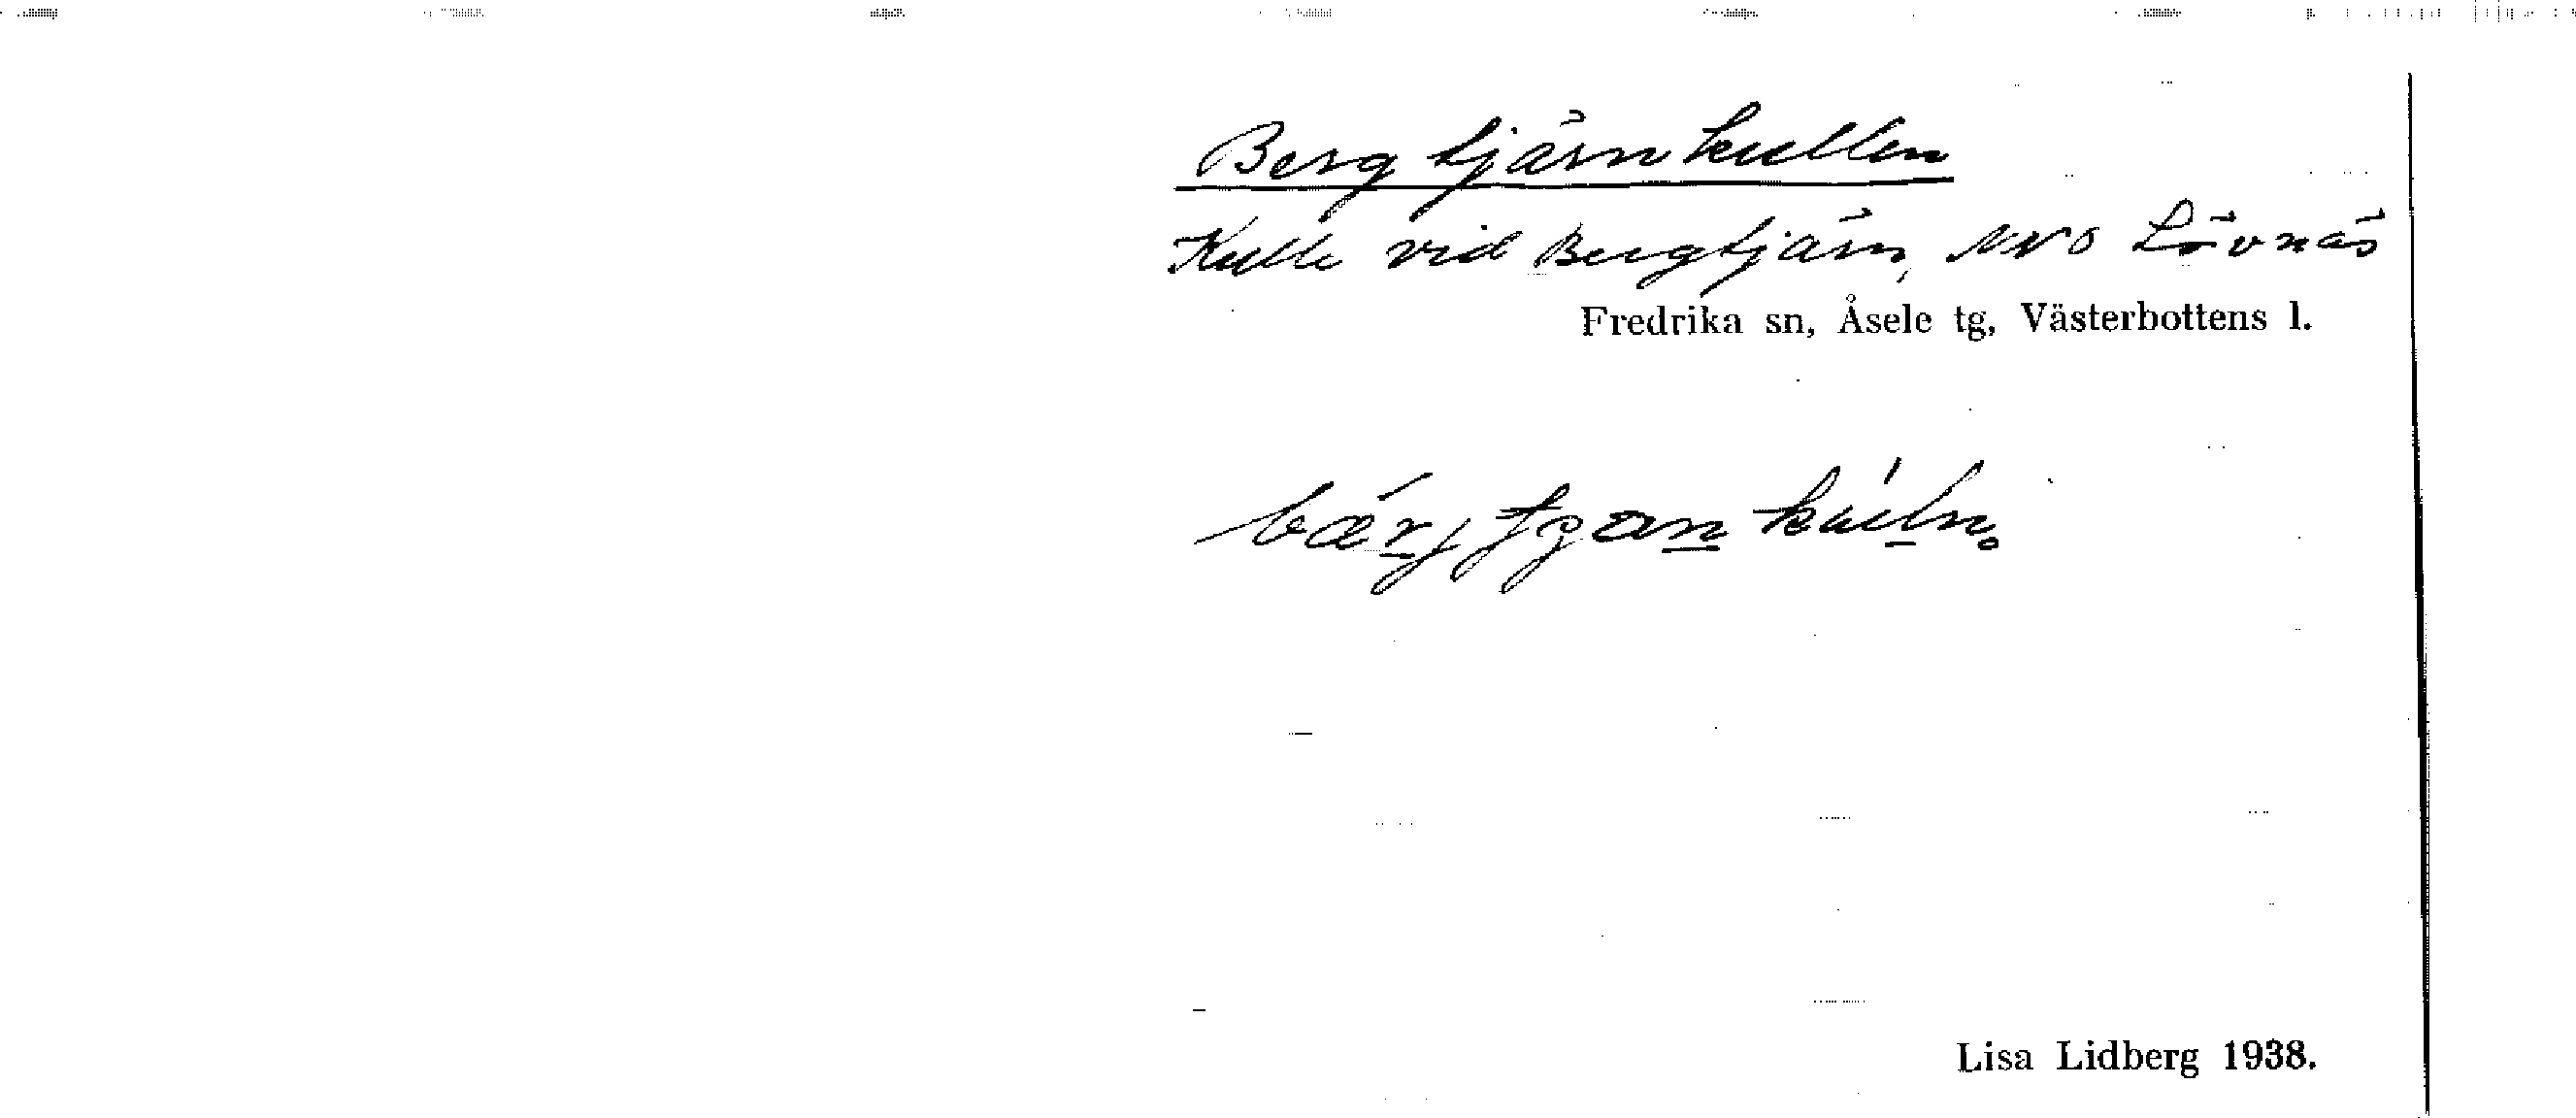 Bergtjärnkullen
Kulle vid Bergtjärn, NNO Lövnäs
Fredrika sn, Åsele tg, Västerbottens l.
Lisa Lidberg 1938.